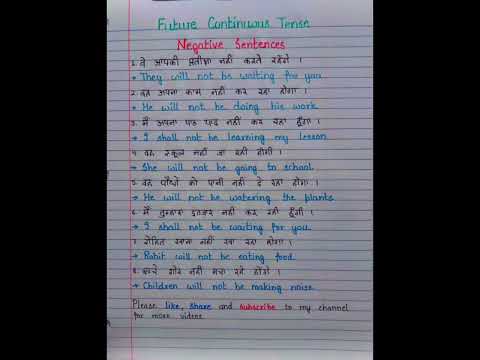 Future Continuous Tense
Negative Sentences
1. वे आपकी प्रतीक्षा नहीं करते रहेंगे ।
→ They will not be waiting for you.
2. वह अपना काम नहीं कर रहा होगा ।
→ He will not be doing his work.
3. मैं अपना पाठ याद नहीं कर रहा हूँगा ।
→ I shall not be learning my lesson.
4. वह स्कूल नहीं जा रही होगी ।
→ She will not be going to school.
5. वह पौधों को पानी नहीं दे रहा होगा ।
→ He will not be watering the plants.
6. मैं तुम्हारा इंतजार नहीं कर रही हूँगी ।
→ I shall not be waiting for you.
7. रोहित खाना नहीं खा रहा होगा ।
→ Rohit will not be eating food.
8. बच्चे शोर नहीं मचा रहे होंगे ।
→ Children will not be making noise.
Please like, share and subscribe to my channel
for more videos